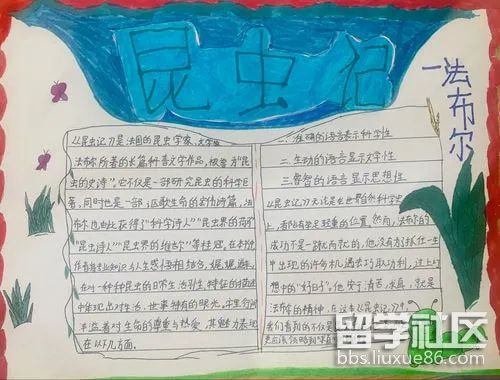 昆虫记
一法布尔
《昆虫记》是法国的昆虫学家、文学家
法布尔所著的长篇科普文学作品,被誉为“昆
虫的史诗”。它不仅是一部研究昆虫的科学巨
著,同时也是一部讴歌生命的宏伟诗篇,法
布尔也由此获得了“科学诗人”“昆虫界的荷马
“昆虫诗人”“昆虫界的维吉尔”等桂冠。在本书
作者将专业知识与人生感悟相结合,娓娓道来
在对一种种昆虫的日常生活习性、特征的描述
中体现出对生活、世事特有的眼光,字里行间
中洋溢着对生命的尊重与热爱,其魅力表现
在以下几方面。
一.准确的语言表示科学性
二.生动的语言显示文学性
三.睿智的语言显示思想性
《昆虫记》无论是在世界的科学史
上,都占有举足轻重的位置,然而,法布尔的
成功不是一蹴而就的,他没有抓住一生
中出现的许多机遇去巧取功利,过上梦
想中的“好日子”。他安于清苦,求真,就是
法布尔的精神,在读《昆虫记》中,
我们看到的不仅是
留学社区
bbs.liuxue86.com